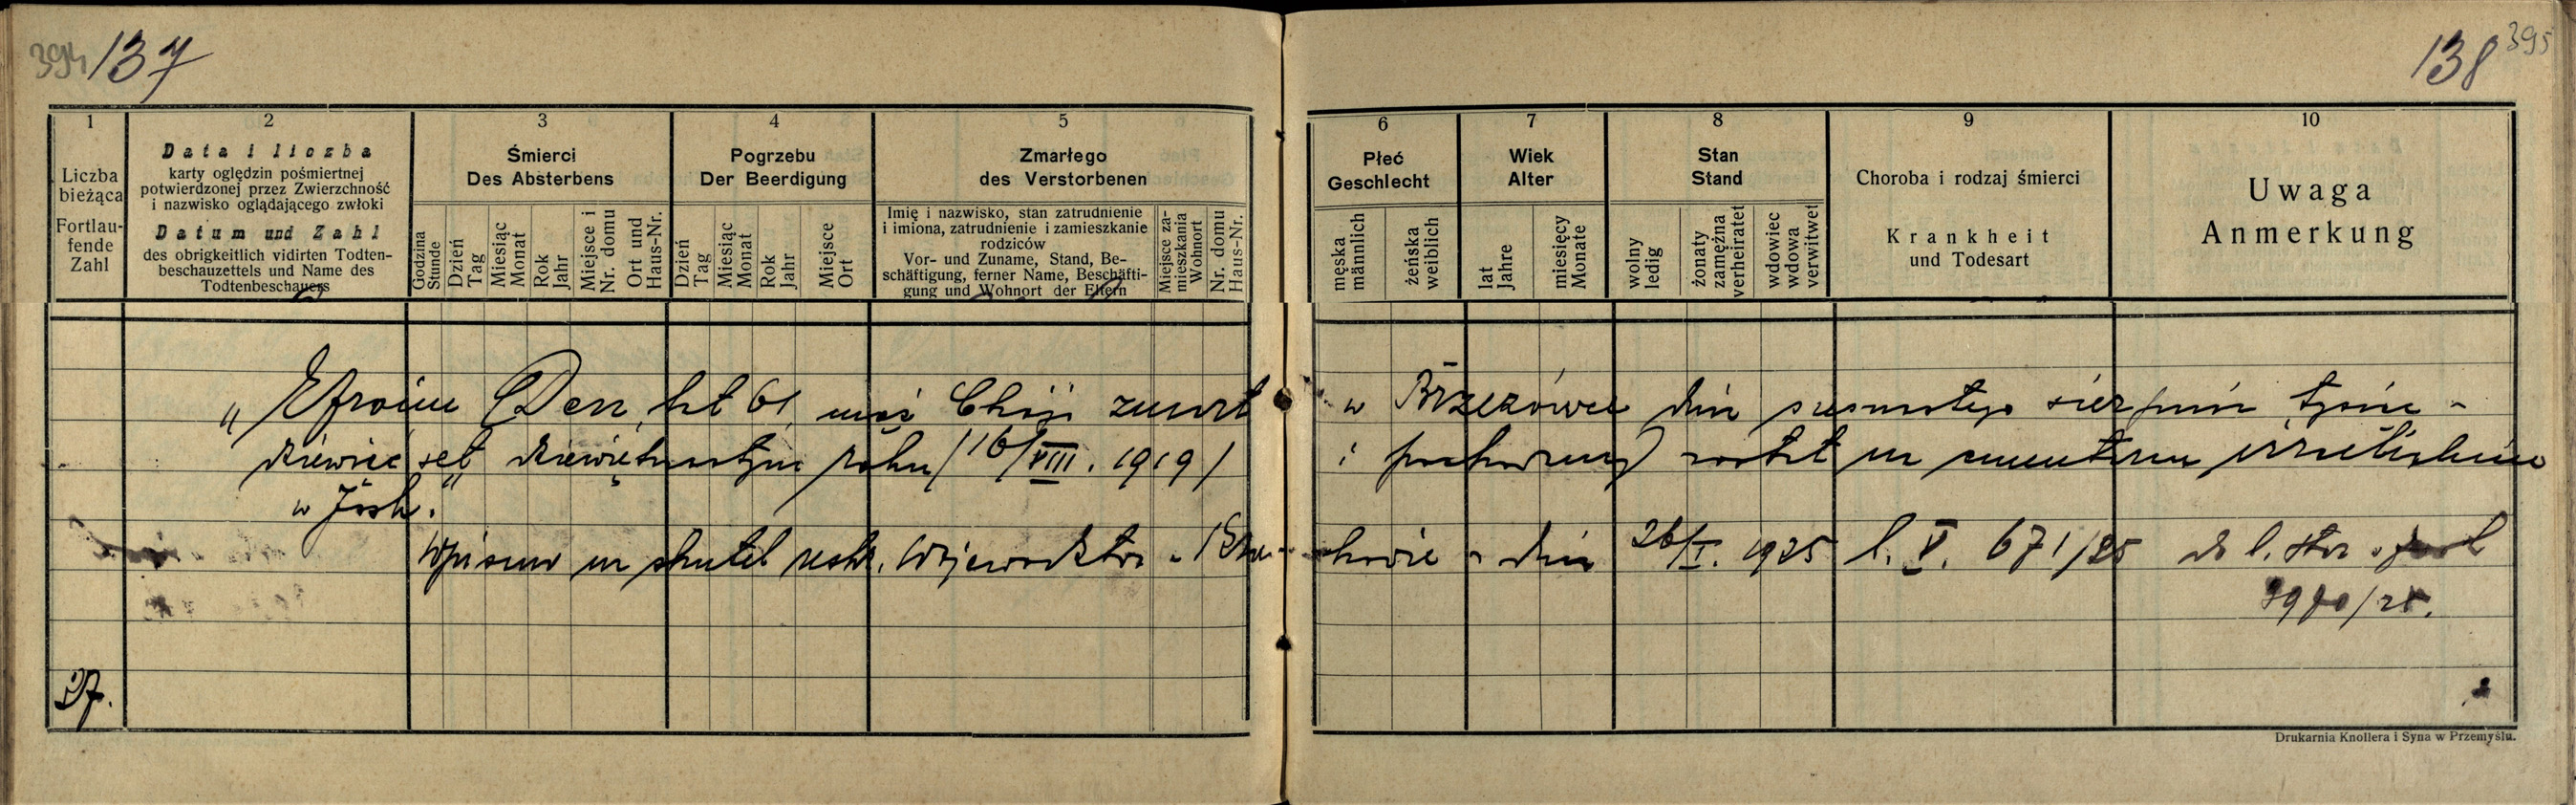 394 137
138 395
1
Liczba
bieżąca
Fortlau-
fende
Zahl
2
Data i liczba
karty oględzin pośmiertnej
potwierdzonej przez Zwierzchność
i nazwisko oglądającego zwłoki
Datum und Zahl
des obrigkeitlich vidirten Todten-
beschauzettels und Name des
Todtenbeschauers
3
Śmierci
Des Absterbens
Godzina
Stunde
Dzień
Tag
Miesiąc
Monat
Rok
Jahr
Miejsce i
Nr. domu
Ort und
Haus-Nr.
4
Pogrzebu
Der Beerdigung
Dzień
Tag
Miesiąc
Monat
Rok
Jahr
Miejsce
Ort
5
Zmarłego
des Verstorbenen
Imię i nazwisko, stan zatrudnienie
i imiona, zatrudnienie i zamieszkanie
rodziców
Vor- und Zuname, Stand, Be-
schäftigung, ferner Name, Beschäfti-
gung und Wohnort der Eltern
Miejsce za-
mieszkania
Wohnort
Nr. domu
Haus-Nr.
6
Płeć
Geschlecht
męska
männlich
żeńska
weiblich
7
Wiek
Alter
lat
Jahre
miesięcy
Monate
8
Stan
Stand
wolny
ledig
żonaty
zamężna
verheiratet
wdowiec
wdowa
verwitwet
9
Choroba i rodzaj śmierci
Krankheit
und Todesart
10
Uwaga
Anmerkung
„Efroim Derr, lat 61 mąż Chaji zmarł w Brzezówce dnia szesnastego sierpnia tysiąc-
dziewięćset dziewiętnastym roku /16/VIII. 1919/ i pochowany został na cmentarzu izraelickim
w Jaśle.
Wpisano na skutek reskr. Województwa w Krakowie z dnia 26/I. 1925 l. V. 671/25 do l. Star. w Jaśle
/25.
27.
Drukarnia Knollera i Syna w Przemyślu.